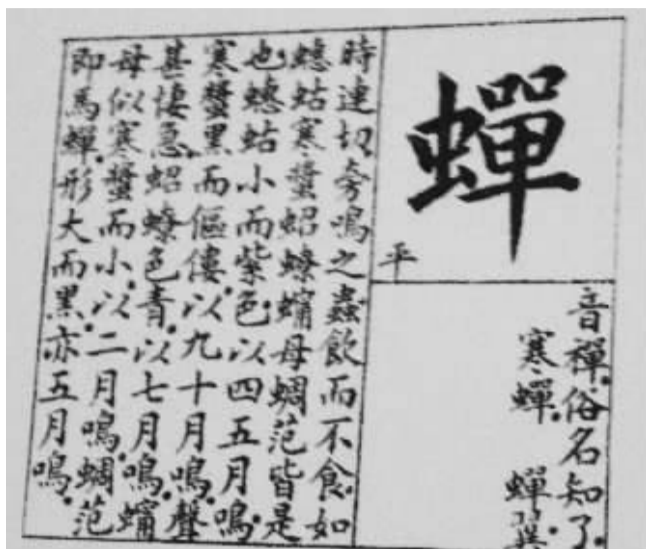 蟬
平
音禪。俗名知了。
寒蟬。 蟬翼
時連切。旁鳴之蟲。飲而不食。如
蟪蛄寒螿蛁蟟蠰母蜩范皆是
也。蟪蛄小而紫色。以四五月鳴。
寒螿黑而傴僂。以九十月鳴。聲
甚悽急。蛁蟟色青。以七月鳴。
母似寒螿而小。以二月鳴。蜩范
即馬蟬。形大而黑。亦五月鳴。